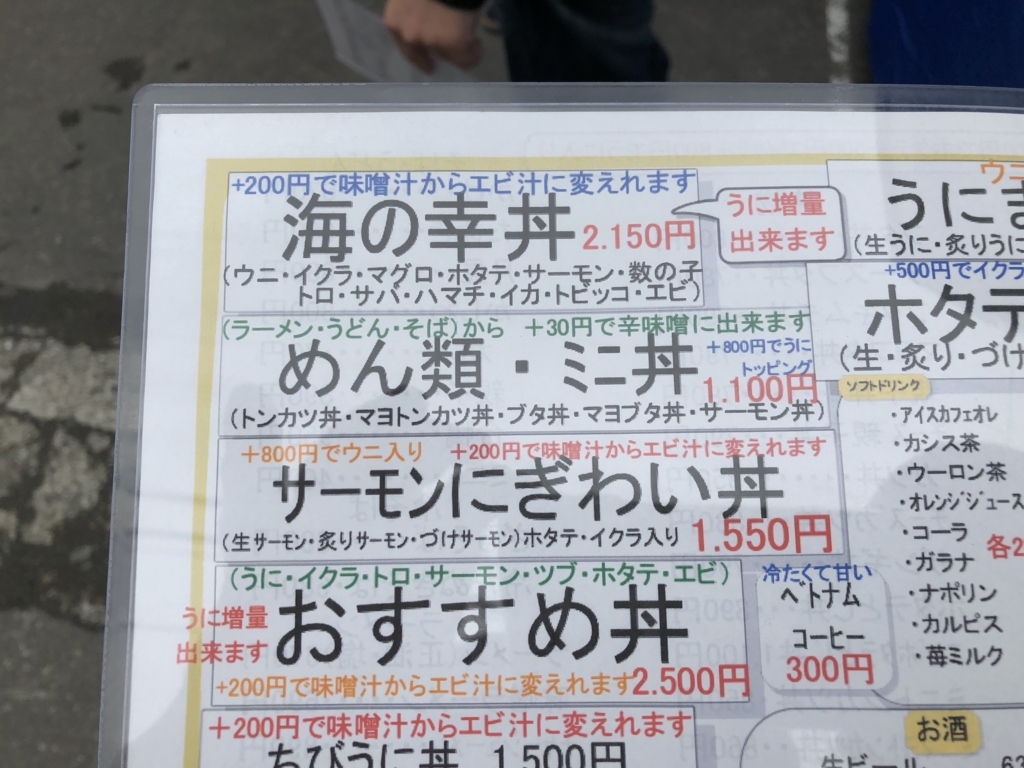 +200円で味噌汁からエビ汁に変えれます
海の幸丼 2.150円
うに増量
出来ます
(ウニ・イクラ・マグロ・ホタテ・サーモン・数の子
トロ・サバ・ハマチ・イカ・トビッコ・エビ)
(ラーメン・うどん・そば)から +30円で辛味噌に出来ます
めん類・ミニ丼
+800円でうに
トッピング
1.100円
(トンカツ丼・マヨトンカツ丼・ブタ丼・マヨブタ丼・サーモン丼)
+800円でウニ入り +200円で味噌汁からエビ汁に変えれます
サーモンにぎわい丼
(生サーモン・炙りサーモン・づけサーモン)ホタテ・イクラ入り 1.550円
(うに・イクラ・トロ・サーモン・ツブ・ホタテ・エビ)
うに増量
出来ます
おすすめ丼
+200円で味噌汁からエビ汁に変えれます 2.500円
+200円で味噌汁からエビ汁に変えれます
ちびうに丼 1,500円
ウニ
うにき
(生うに・炙りうに
+500円でイクラ
ホタテ
(生・炙り・づけ
ソフトドリンク
・アイスカフェオレ
・カシス茶
・ウーロン茶
・オレンジジュース
・コーラ
・ガラナ
各2
・ナポリン
・カルピス
・苺ミルク
冷たくて甘い
ベトナム
コーヒー
300円
お酒
生ビール